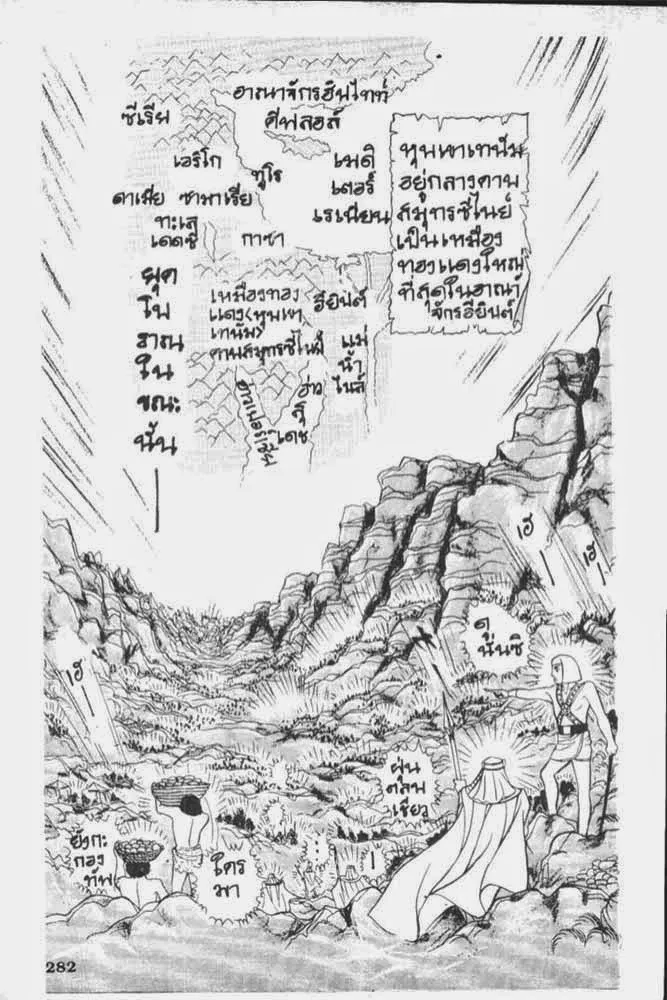 อาณาจักรฮิปไทท์
ซีเรีย
คีฟลอส์
เอริโก
ทูโร
เมดิ
เตอร์
เรเนียน
ดาเมีย
ซามาเรีย
ทะเล
เดดซี
กาซา
หุบเขาเทนัม
อยู่กลางคาบ
สมุทรซีไนย์
เป็นเหมือง
ทองแดงใหญ่
ที่สุดในอาณา
จักรอียิบต์
เหมืองทอง
แดง(หุบเขา
เทนัม)
คาบสมุทรซีไนย์
อียิบต์
แม่
น้ำ
ไนล์
ยุค
โบ
ราณ
ใน
ขณะ
นั้น
เฮ้
เฮ้
ดู
นั่นซิ
เฮ้
ฝุ่น
ตลบ
เชียว
ยังกะ
กอง
ทัพ
ใคร
มา
...
282